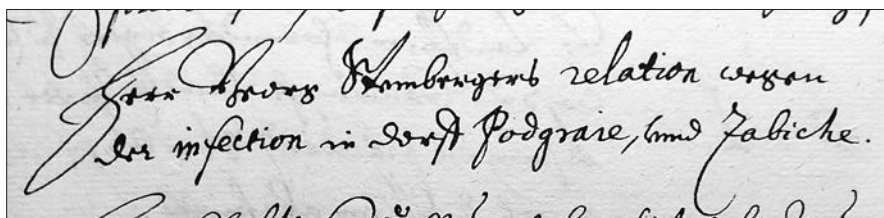 Herr Georg Stembergers relation wegen
der infection in dorff Podgraie, vnd Zabiche.